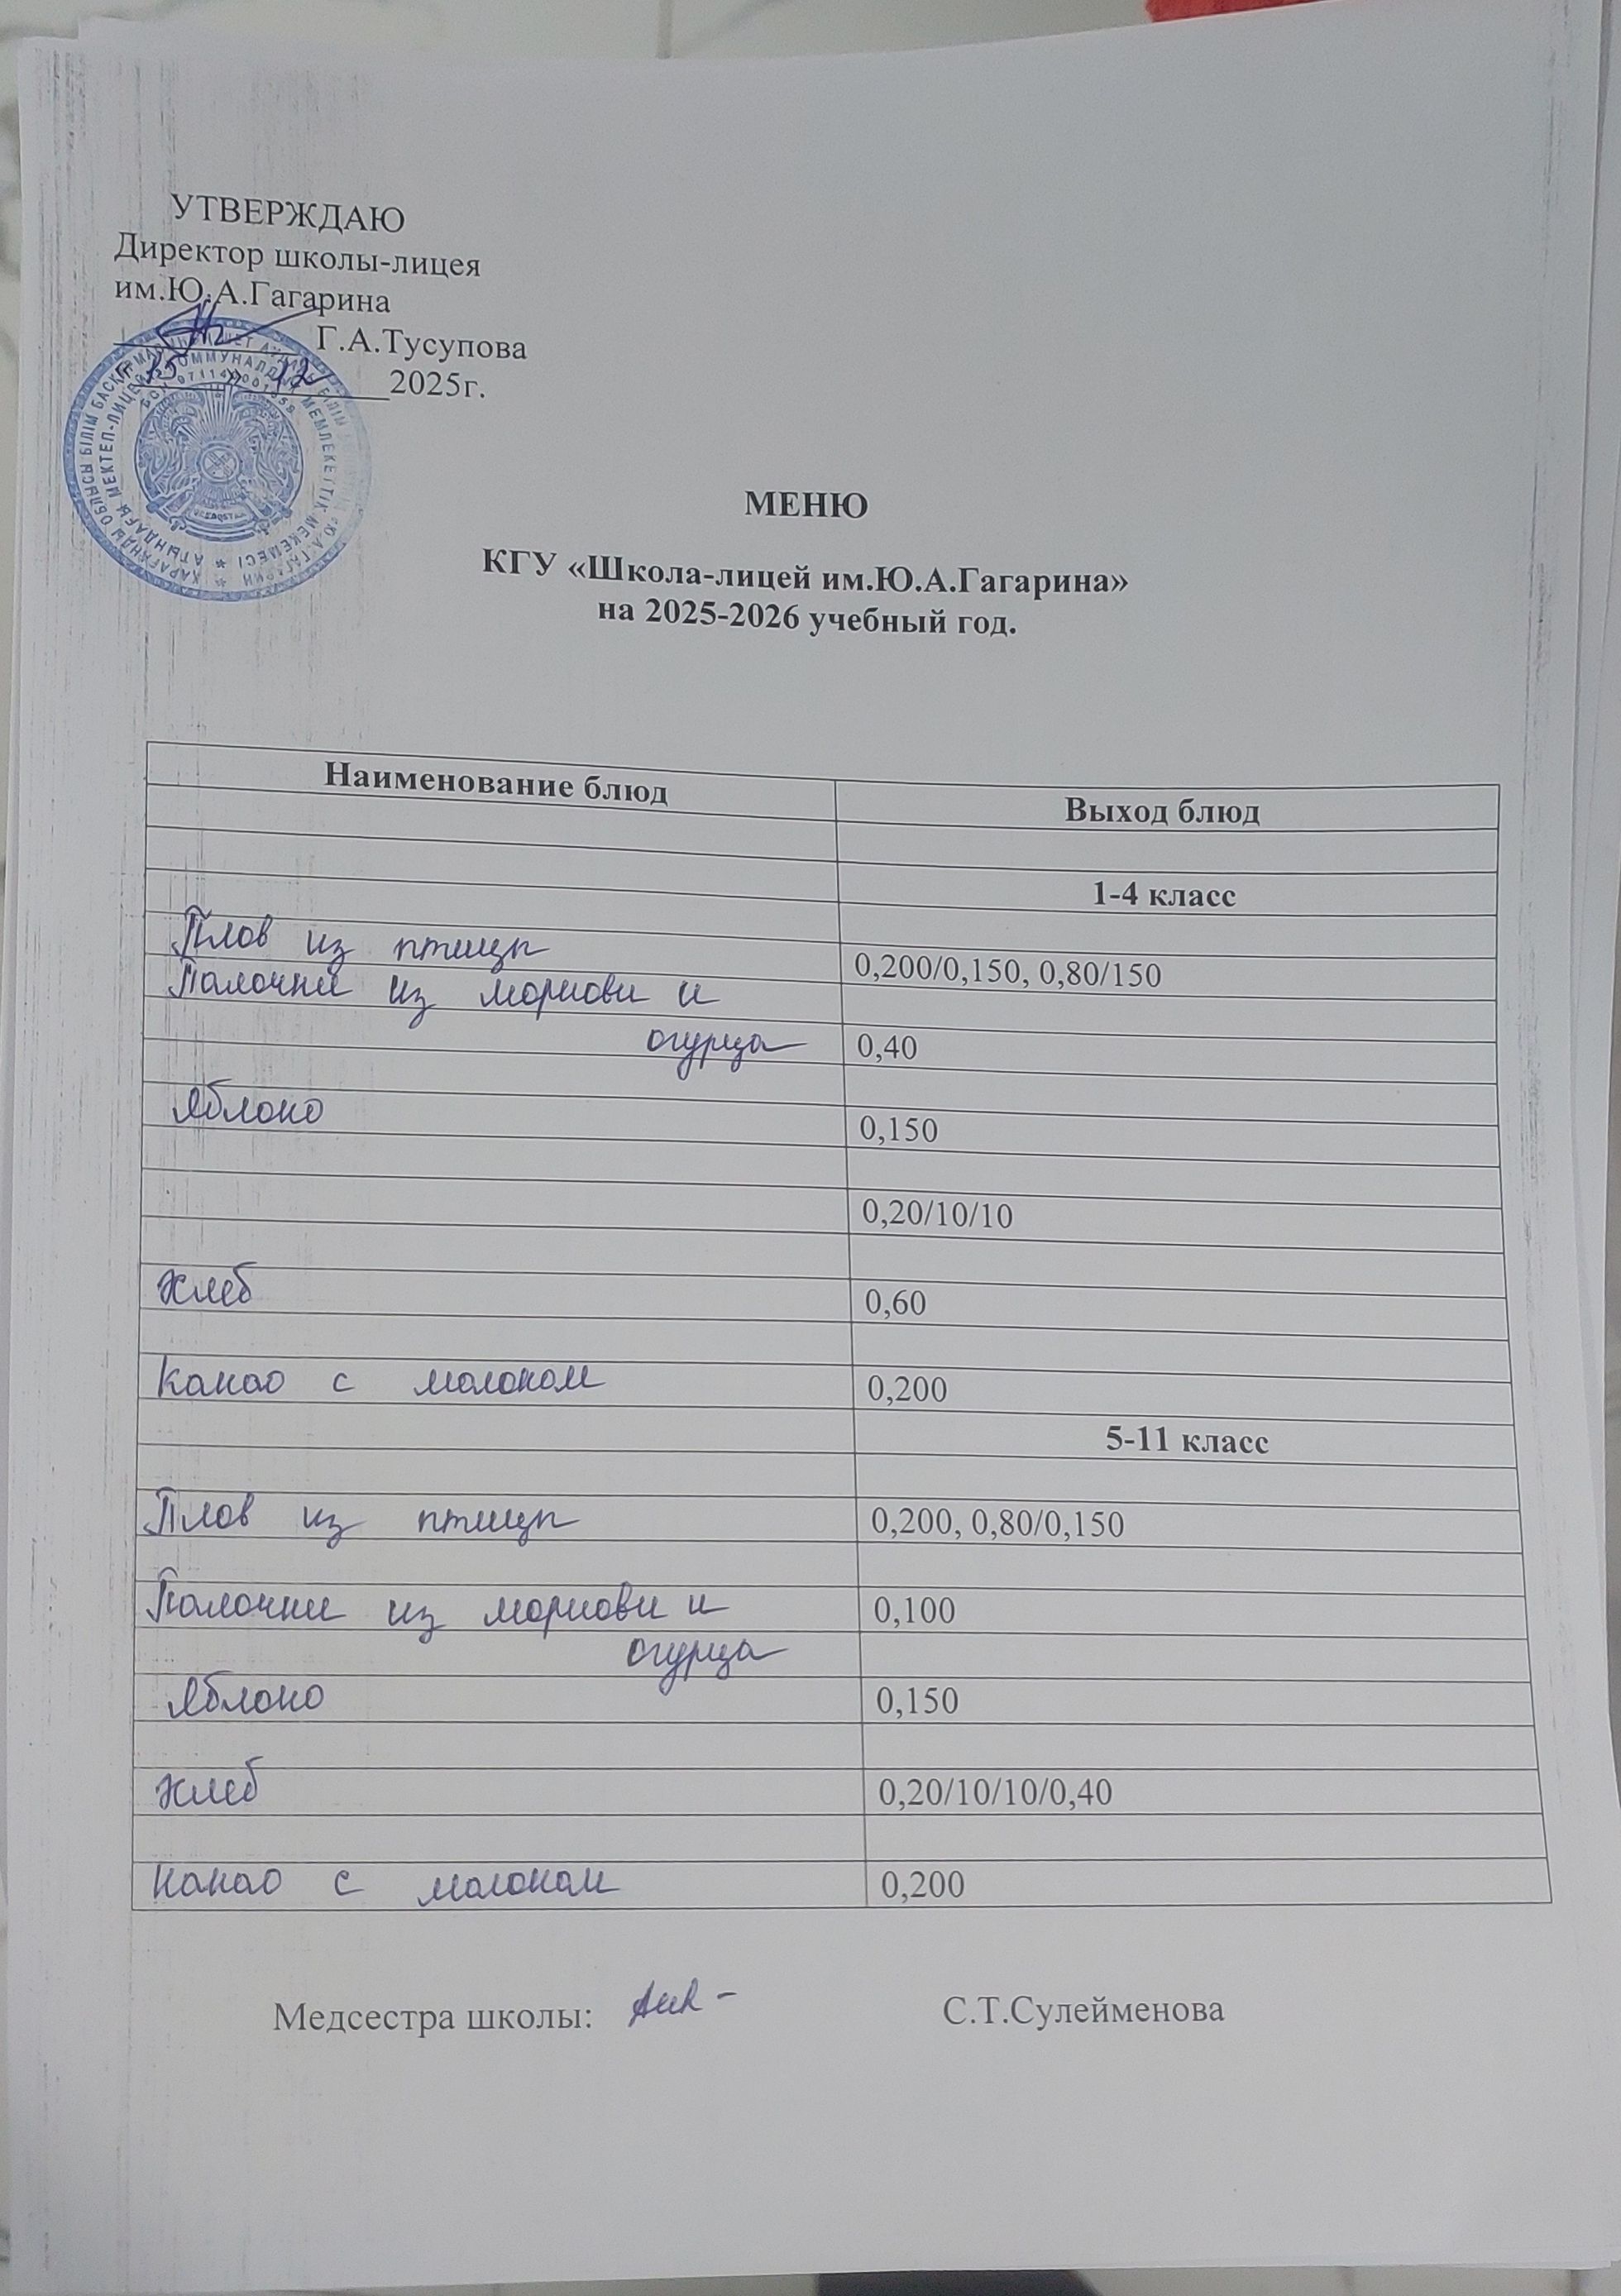 УТВЕРЖДАЮ
Директор школы-лицея
им.Ю.А.Гагарина
Г.А.Тусупова
« 15 » 12 2025г.
МЕНЮ
КГУ «Школа-лицей им.Ю.А.Гагарина»
на 2025-2026 учебный год.
Наименование блюд Выход блюд
1-4 класс
Плов из птицы 0,200/0,150, 0,80/150
Палочки из моркови и
огурца 0,40
Яблоко 0,150
0,20/10/10
Хлеб 0,60
Какао с молоком 0,200
5-11 класс
Плов из птицы 0,200, 0,80/0,150
Палочки из моркови и 0,100
огурца
Яблоко 0,150
Хлеб 0,20/10/10/0,40
Какао с молоком 0,200
Медсестра школы: С.Т.Сулейменова